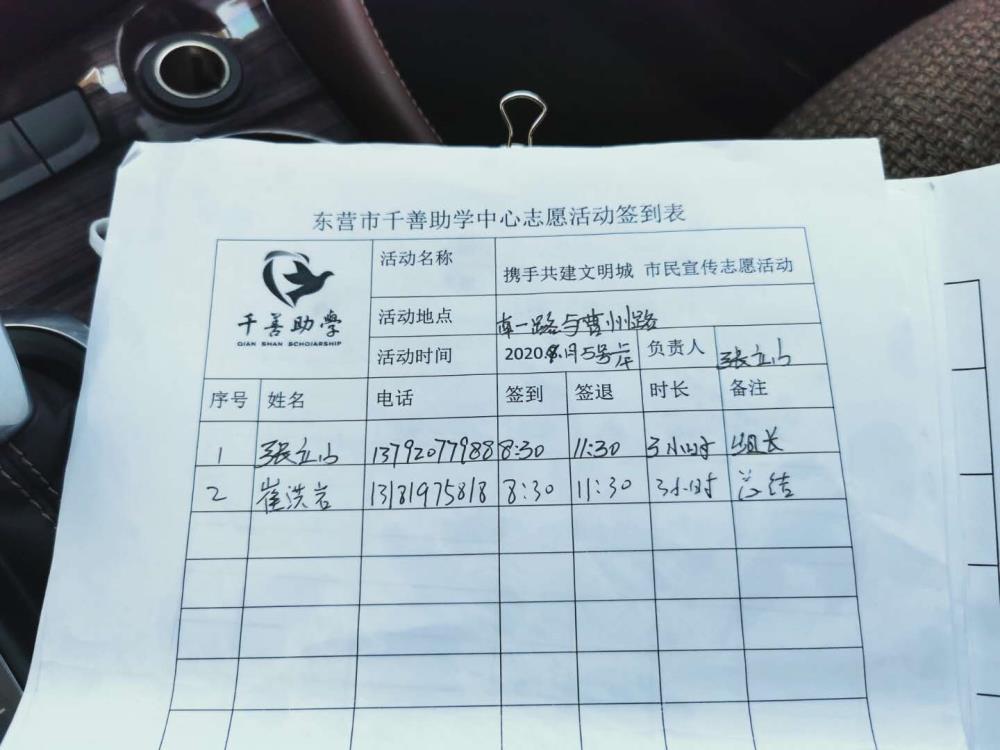 东营市千善助学中心志愿活动签到表
千善助学
QIAN SHAN SCHOIARSHIP
活动名称 携手共建文明城 市民宣传志愿活动
活动地点 南一路与曹州路
活动时间 2020.8月5号上午 负责人 张立山
序号 姓名 电话 签到 签退 时长 备注
1 张立山 13792077988 8:30 11:30 3小时 组长
2 崔洪岩 13181975818 8:30 11:30 3小时 总结